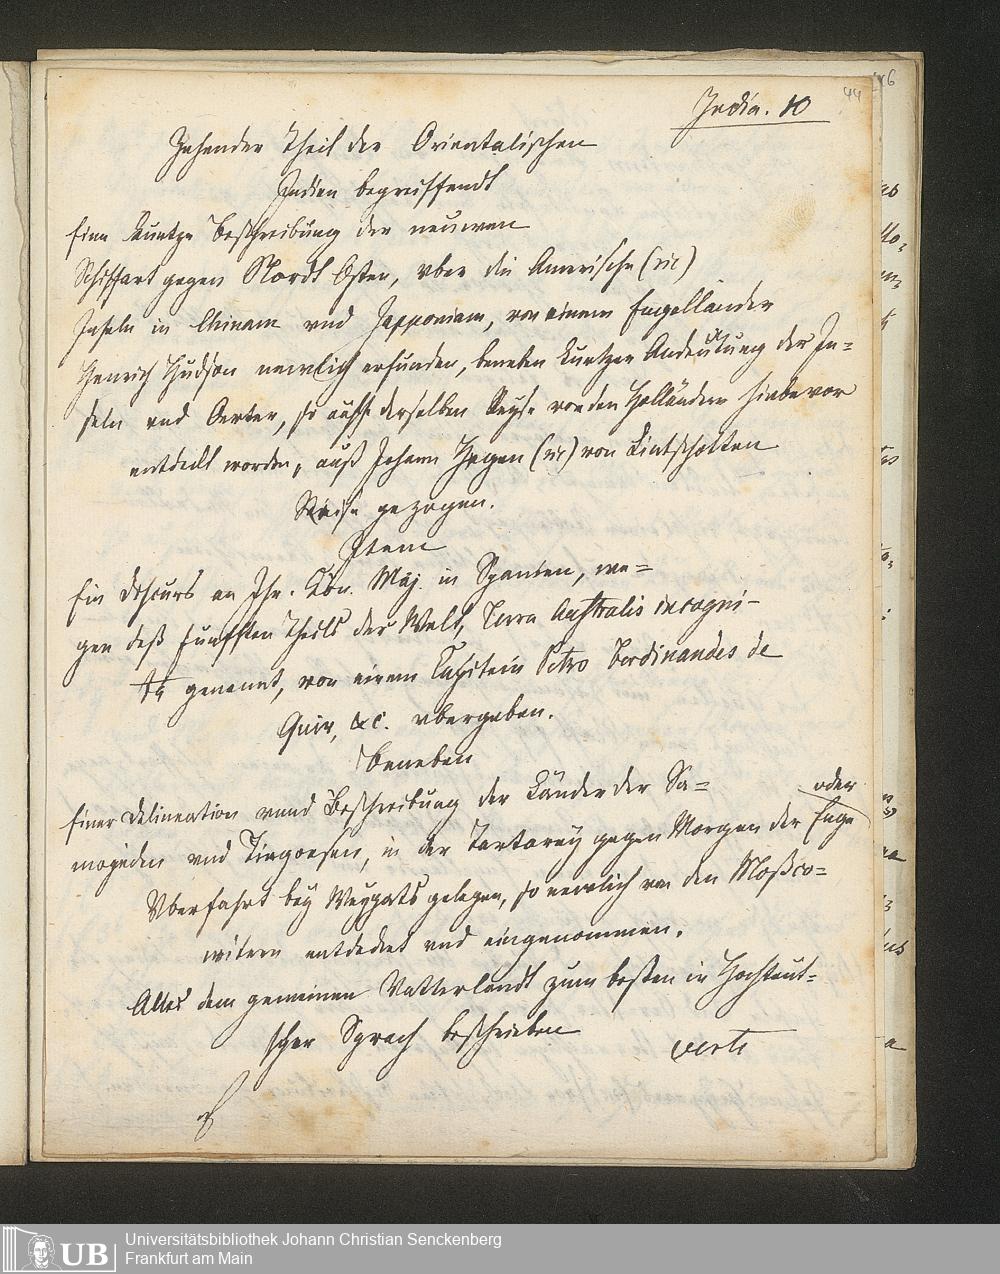 44
116
India. 10
Zehender Theil der Orientalischen
Indien begreiffendt
Eine kurtze Beschreibung der neuwen
Schiffart gegen Nordt Osten, vber die Amerische (sic)
Inseln in Chinam vnd Japponiam, von einem Engelländer
Henrich Hudson newlich erfunden, beneben kurtzer Andeutung der In=
seln vnd Oerter, so auff derselben Reyse von den Holländern hiebevor
entdeckt worden, auß Johann Hugen (sic) von Lintschotten
Reise gezogen.
Item
Ein Discurs an Ihr. Kön. Maj. in Spanien, we=
gen deß fünfften Theils der Welt, Terra Australis incogni-
ta genannt, von einem Capitein Petro Ferdinandes de
Quir, &c. vbergeben.
Beneben
Einer Delineation vnnd Beschreibung der Länder der Sa=
mojeden vnd Tingoesen, in der Tartarey gegen Morgen der Enge
oder
Vberfahrt bey Weygats gelegen, so newlich von den Moßco=
witern entdecket vnd eingenommen.
Alles dem gemeinen Vatterlandt zum besten in Hochteut=
scher Sprach beschrieben
verte
UB
Universitätsbibliothek Johann Christian Senckenberg
Frankfurt am Main